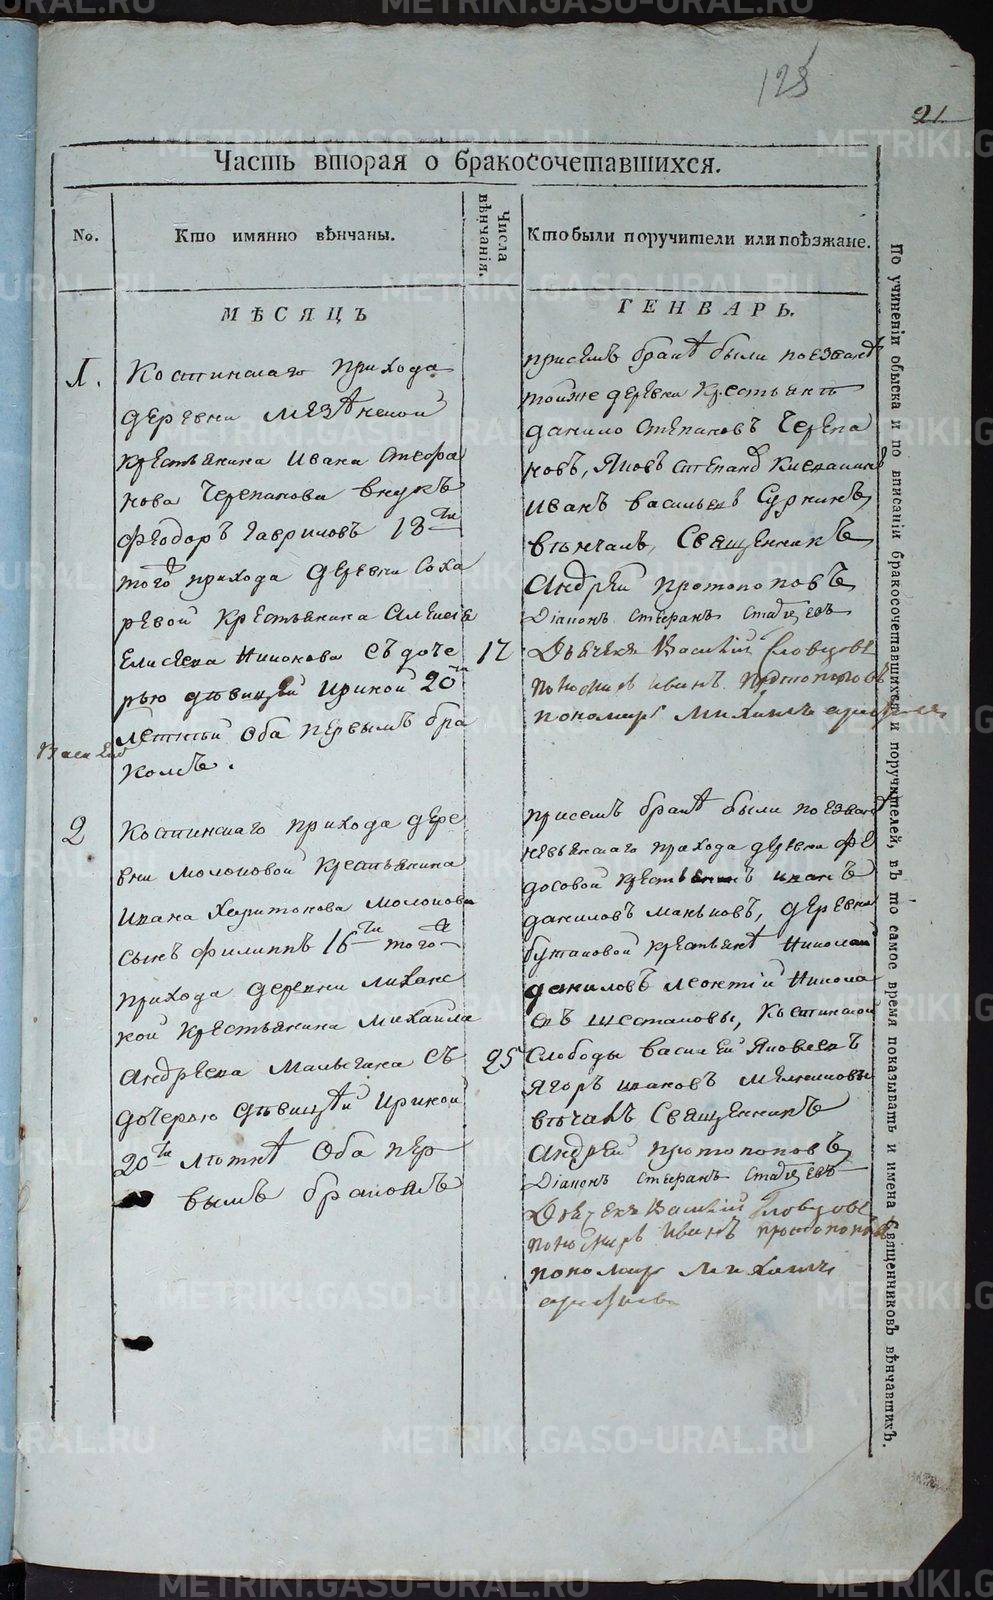 128
21
Часть вторая о бракосочетавшихся.
No.
Кто имянно вѣнчаны.
Числа вѣнчанія.
Кто были поручители или поѣзжане.
МѢСЯЦЪ
ГЕНВАРЬ.
1.
Костинскаго прихода
деревни
крестьянина Ивана Стефа
нова Черепанова внукъ
Феодоръ Гавриловъ 18ти
того прихода деревни Соха
ревой крестьянина Алексѣя
Елисеева Никонова съ доче
рью дѣвицей Ириной 20ти
лѣтней оба первымъ бра
комъ.
17
присемъ бракѣ были поезжанѣ
тойже деревни крестьянѣ
данило Степановъ Черепа
новъ, Яковъ
иванъ васильевъ Суркинъ,
вѣнчалъ, Священникъ
Андрей протопоповъ
Діаконъ Стефанъ
Дьячекъ Василій Словцовъ
пономарь иванъ протопоповъ
пономарь Михаилъ
2
Костинскаго прихода дере
вни молоковой крестьянина
ивана Харитонова молокова
сынъ филиппъ 16ти того
прихода деревни
крестьянина Михаила
Андреева Мальгина съ
дочерью дѣвицей Ириной
20ти лѣтнѣ Оба пер
вымъ бракомъ
25
присемъ бракѣ были поезжанѣ
невьянскаго прихода деревни фе
досовой крестьянинъ иванъ
даниловъ маньковъ, деревни
бутаковой крестьянѣ Николай
даниловъ леонтій Никола
евъ шестаковы, Костинской
Слободы василей Яковлевъ
Ягоръ ивановъ мелкиковы
вѣнчалъ Священникъ
Андрей протопоповъ
Діаконъ Стефанъ
Дьячекъ Василій Словцовъ
пономарь иванъ протопоповъ
пономарь Михаилъ
По учиненіи обыска и по вписаніи бракосочетавшихся и поручителей, въ то самое время показывать и имена Священниковъ вѣнчавшихъ.
METRIKI.GASO-URAL.RU